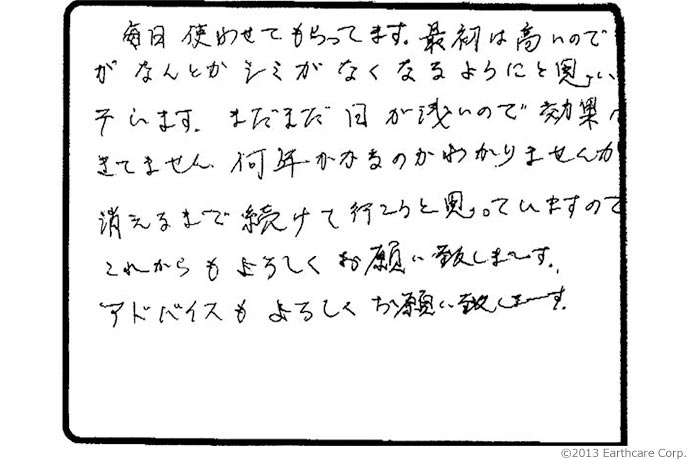 毎日使わせてもらってます。最初は高いので
がなんとかシミがなくなるようにと思い
ています。まだまだ日が浅いので効果
きてません。何年かかるのかわかりませんが
消えるまで続けて行こうと思っていますので
これからもよろしくお願い致しま〜す。
アドバイスもよろしくお願い致しま〜す。
©2013 Earthcare Corp.